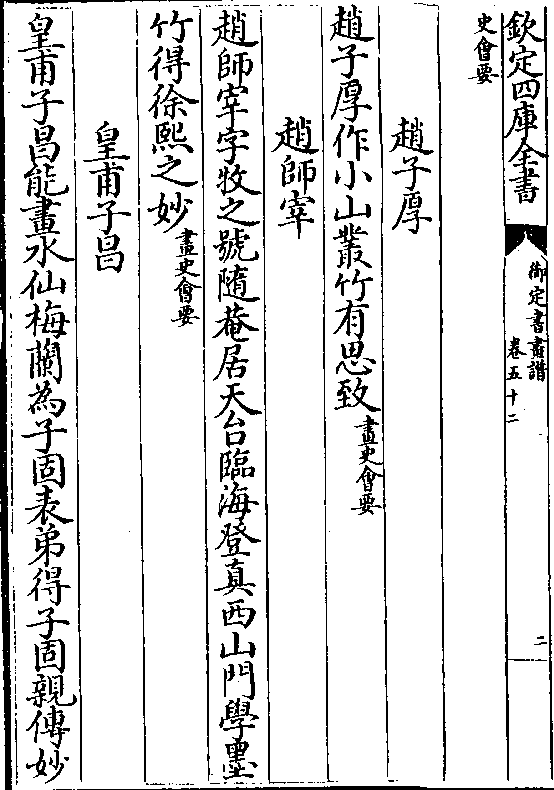 欽定四庫全書
御定書畫譜
卷五十二
二
史會要
趙子厚
趙子厚作小山叢竹有思致畫史會要
趙師宰
趙師宰字牧之號隨菴居天台臨海登真西山門學墨
竹得徐熙之妙畫史會要
皇甫子昌
皇甫子昌能畫水仙梅蘭為子固表弟得子固親傳妙